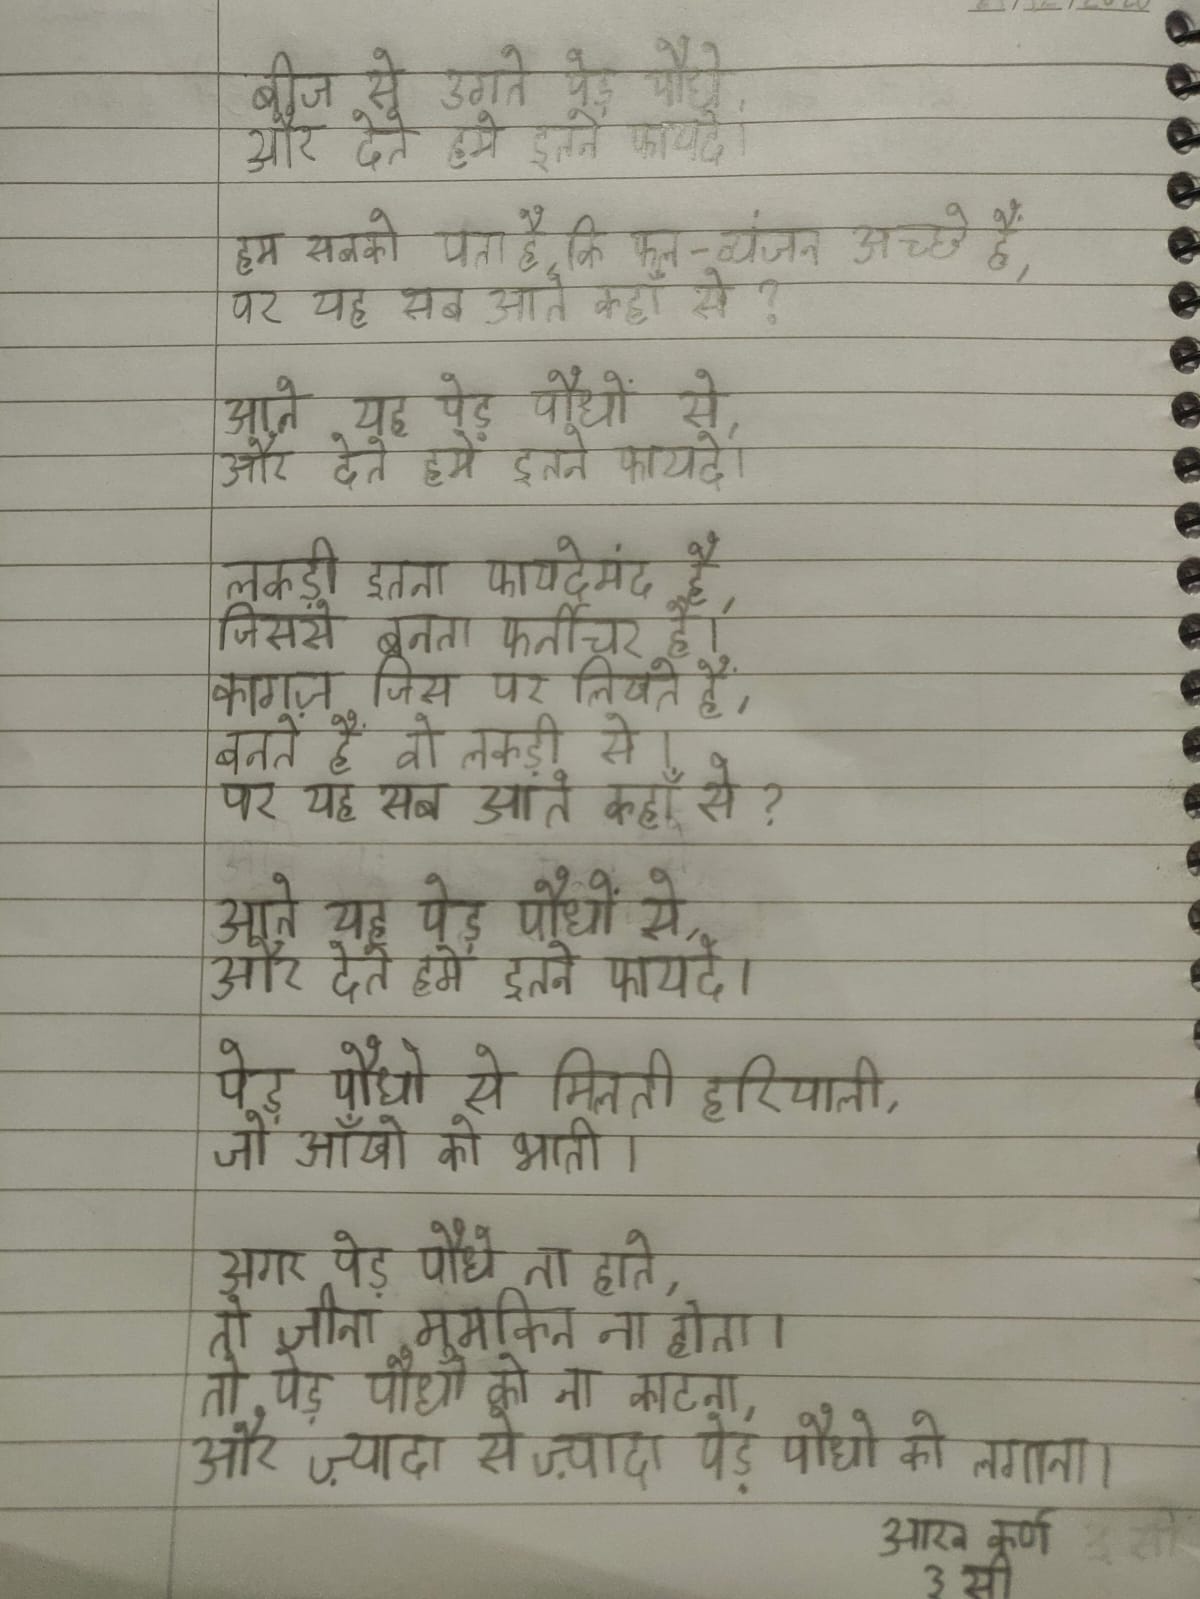 बीज से उगते पेड़ पौधे,
और देते हमे इतने फायदे।
हम सबको पता है, कि फल-व्यंजन अच्छे हैं,
पर यह सब आते कहाँ से?
आते यह पेड़ पौधों से,
और देते हमें इतने फायदे।
लकड़ी इतना फायदेमंद है,
जिससे बनता फर्नीचर है।
कागज़ जिस पर लिखते हैं,
बनते हैं वो लकड़ी से।
पर यह सब आते कहाँ से?
आते यह पेड़ पौधों से,
और देते हमें इतने फायदे।
पेड़ पौधो से मिलती हरियाली,
जो आँखो को भाती।
अगर पेड़ पौधे ना होते,
तो जीना मुमकिन ना होता।
तो पेड़ पौधो को ना काटना,
और ज़्यादा से ज़्यादा पेड़ पौधो को लगाना।
आरव कर्ण
३ सी